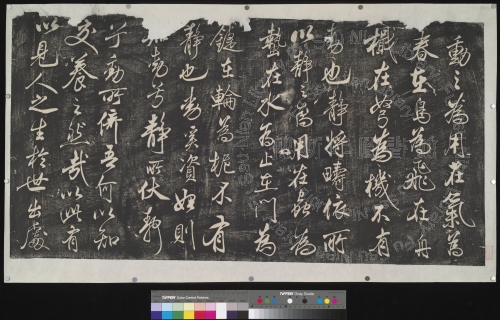 動之為用在氣為
春在鳥為飛在舟
楫在弩為機不有
動也靜將疇依所
以靜之為用在蟲為
蟄在水為止在門為
鍵在輪為柅不有
靜也動奚資始則
動兮靜所伏靜
兮動所倚吾何以知
交養之然哉以此有
以見人之生於世出處